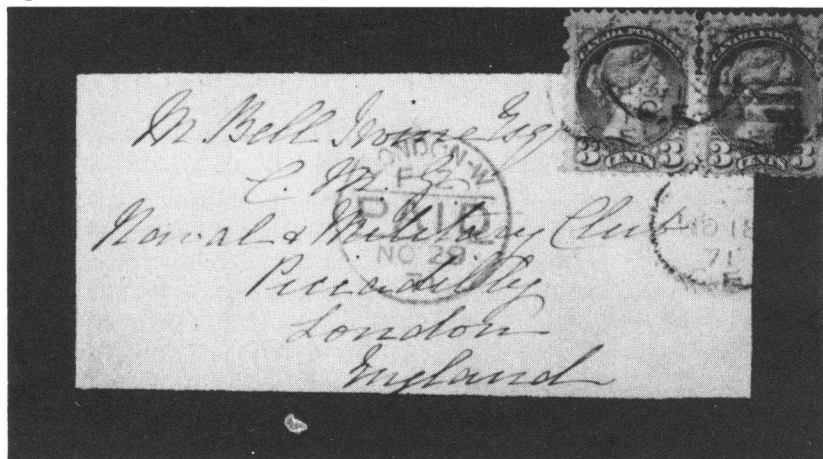 CANADA POSTAGE CANADA POSTAGE
3 CENTS 3 3 CENTS 3
M Bell Irvine Esq
C. M. G
Naval & Military Club
Piccadilly
London
England
LONDON-W
PAID
NO 29
NO 18
71
C.E.